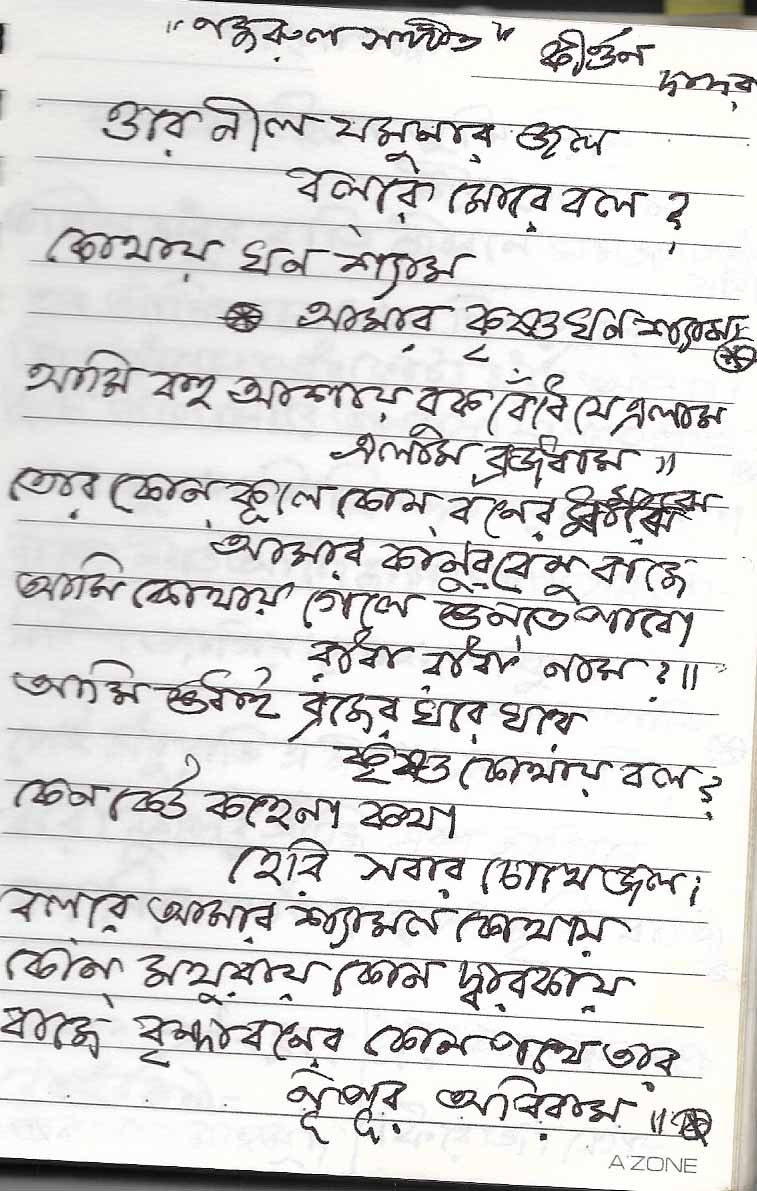 "নজরুল সঙ্গীত" কীর্ত্তন
দাদরা
ওরে নীল যমুনার জল
বলরে মোরে বল ?
কোথায় ঘন শ্যাম
আমার কৃষ্ণ ঘন শ্যাম
আমি বহু আশায় বুক বেঁধে যে এলাম
এলাম ব্রজধাম ॥
তোর কোন্ কূলে কোন্ বনের মাঝে
আমার কানুর বেনু বাজে
আমি কোথায় গেলে শুনতে পাবো
রাধা রাধা নাম ? ॥
আমি শুধাই ব্রজের ঘরে ঘরে
কৃষ্ণ কোথায় বল ?
কেন কেউ কহেনা কথা
হেরি সবার চোখে জল ;
বলরে আমার শ্যামল কোথায়
কোন্ মথুরায় কোন দ্বারকায়
বাজে বৃন্দাবনের কোন পথে তার
নূপুর অবিরাম ॥
A'ZONE